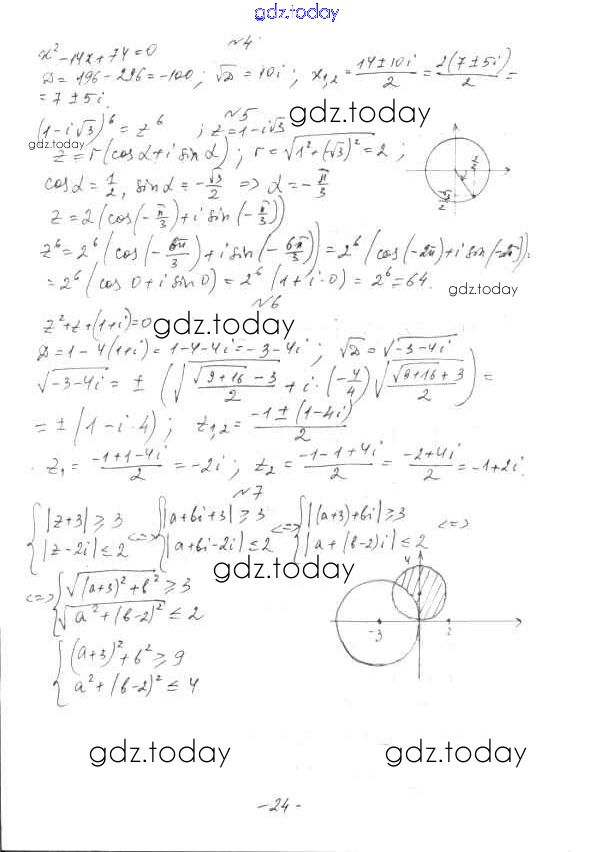 gdz.today
№4
x² - 14x + 74 = 0
D = 196 - 296 = -100; √D = 10i; x₁,₂ = (14 ± 10i)/2 = 2(7 ± 5i)/2 =
= 7 ± 5i.
№5
gdz.today
(1 - i√3)⁶ = z⁶; z = 1 - i√3
gdz.today
z = r(cos α + i sin α); r = √(1² + (√3)²) = 2;
cos α = 1/2, sin α = -√3/2 => α = -π/3
z = 2(cos(-π/3) + i sin(-π/3))
z⁶ = 2⁶(cos(-6π/3) + i sin(-6π/3)) = 2⁶(cos(-2π) + i sin(-2π)) =
= 2⁶(cos 0 + i sin 0) = 2⁶(1 + i·0) = 2⁶ = 64.
gdz.today
№6
z² + z + (1+i) = 0
gdz.today
D = 1 - 4(1+i) = 1 - 4 - 4i = -3 - 4i; √D = √(-3-4i)
√(-3-4i) = ± (√((√(9+16) - 3)/2) + i·(-4/4)√((√(9+16) + 3)/2)) =
= ± (1 - i·4); z₁,₂ = (-1 ± (1-4i))/2
z₁ = (-1+1-4i)/2 = -2i; z₂ = (-1-1+4i)/2 = (-2+4i)/2 = -1+2i.
№7
{|z+3| ≥ 3 <=> {|a+bi+3| ≥ 3 <=> {|(a+3)+bi| ≥ 3 <=>
{|z-2i| ≤ 2 {|a+bi-2i| ≤ 2 {|a+(b-2)i| ≤ 2
gdz.today
<=> {√((a+3)²+b²) ≥ 3
{√(a²+(b-2)²) ≤ 2
4
-3 2
{(a+3)²+b² ≥ 9
{a²+(b-2)² ≤ 4
gdz.today gdz.today
-24-